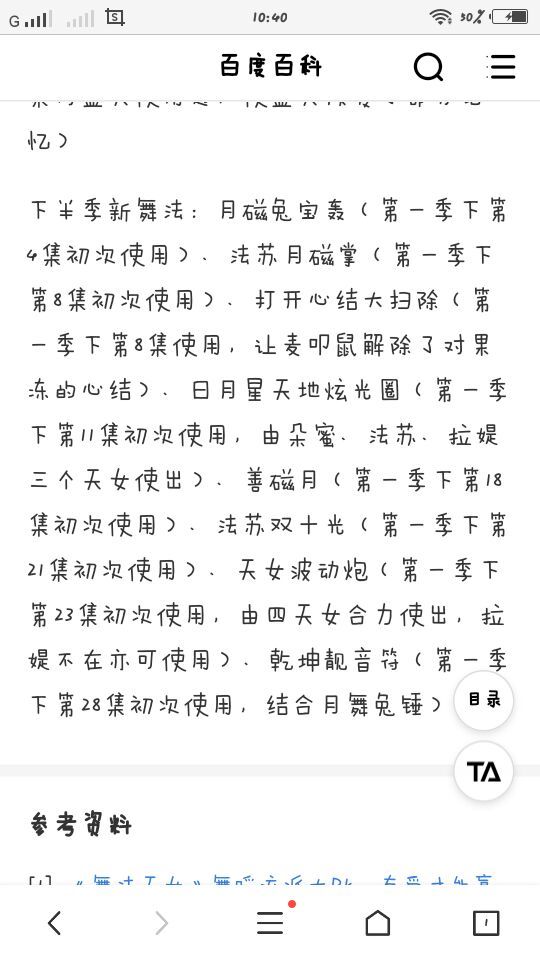 G
10:40
30%
百度百科
忆）
下半季新舞法：月磁兔宝轰（第一季下第
4集初次使用）、法苏月磁掌（第一季下
第8集初次使用）、打开心结大扫除（第
一季下第8集使用，让麦叩鼠解除了对果
冻的心结）、日月星天地炫光圈（第一季
下第11集初次使用，由朵蜜、法苏、拉媞
三个天女使出）、善磁月（第一季下第18
集初次使用）、法苏双十光（第一季下第
21集初次使用）、天女波动炮（第一季下
第23集初次使用，由四天女合力使出，拉
媞不在亦可使用）、乾坤靓音符（第一季
下第28集初次使用，结合月舞兔锤）
目录
TA
参考资料
1